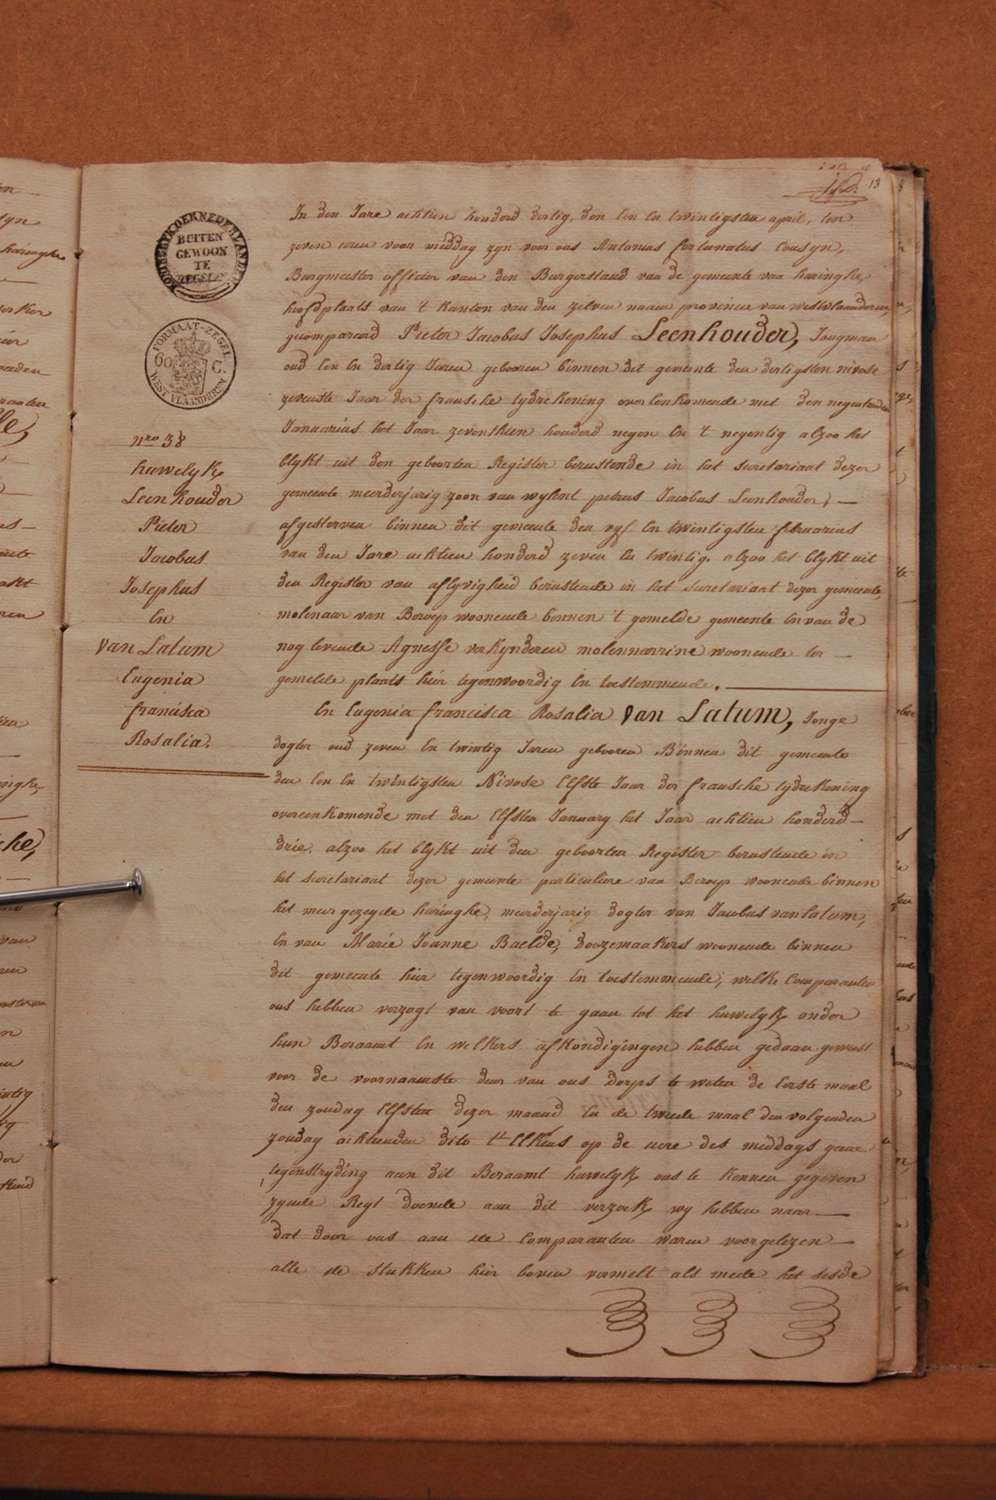 13
KONINGRYK DER NEDERLANDEN
BUITEN
GEWOON
TE
ZEGELEN
FORMAAT-ZEGEL
60 C.
WEST VLAANDEREN
nro 38
huwelyk
Leenhouder
Pieter
Jacobus
Josephus
En
van Latum
Eugenia
franciska
Rosalia.
In den Jare achtien honderd dertig, den een en twintigsten april, ten
zeven uren voor middag zyn voor ons Antonius fortunatus Cousyn,
Burgmeester officier van den Burgerstand van de gemeente van haringhe,
hoofdplaats van 't kanton van den zelven naam provincie van westvlaanderen
gecompareerd Pieter Jacobus Josephus Leenhouder, Jongman
oud een en dertig Jaren geboren binnen dit gemeente den dertigsten nivose
zevenste Jaar der fransche tydrekening overeenkomende met den negentienden
Januarius het Jaar zeventhien honderd negen en 't negentig alzoo het
blykt uit den geboorten Register berustende in het secretariaat dezer
gemeente meerderjarig zoon van wylent petrus Jacobus Leenhouder, —
afgestorven binnen dit gemeente den vyf en twintigsten februarius
van den Jare achtien honderd zeven en twintig. alzoo het blykt uit
den Register van aflyvigheid berustende in het secretariaat dezer gemeente,
molenaar van Beroep woonende binnen 't gemelde gemeente en van de
nog levende Agnesse verkynderen molennarrine woonende ter —
gemelde plaats hier tegenwoordig en toestemmende.
En Eugenia francisca Rosalia van Latum, Jonge
dogter oud zeven en twintig Jaren geboren Binnen dit gemeente
den een en twintigsten Nivose Elfste Jaar der fransche tydrekening
overeenkomende met den Elfsten January het Jaar achtien honderd —
drie. alzoo het blykt uit den geboorten Register berustende in
het secretariaat dezer gemeente particuliere van Beroep woonende binnen
het meergezeyde haringhe, meerderjarig dogter van Jacobus van Latum,
en van Marie Joanne Baelde, doozemaakers woonende binnen
dit gemeente hier tegenwoordig en toestemmende, welke Comparanten
ons hebben verzogt van voort te gaan tot het huwelyk onder
hun Beraamt en welkers afkondigingen hebben gedaan geweest
voor de voornaamste deur van ons dorps te weten de eerste maal
den zondag Elfsten dezer maand en de tweede maal den volgenden
zondag achtienden dito 't Elkens op de uere des middags geene
tegenstryding aan dit Beraamt huwelyk ons te konnen gegeven
zynde Regt doende aan dit verzoek wy hebben naar —
dat door ons aan de Comparanten waren voorgelezen —
alle de stukken hier boven vermelt als mede het sesde